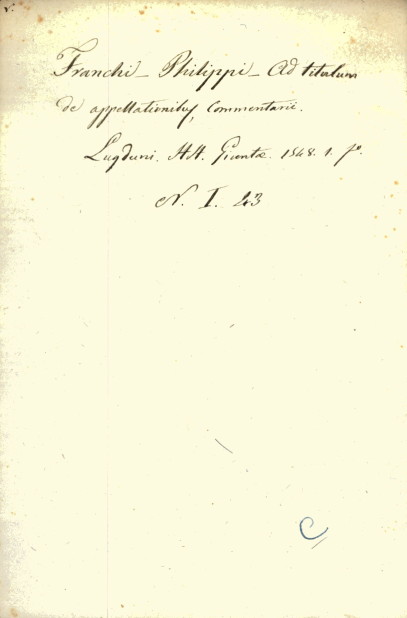 v.
Franchi_ Philippi_ Ad titulum
de appellationibus, Commentarii.
Lugduni. HH. Giuntæ. 1548. 1. fº.
N. I. 23
C